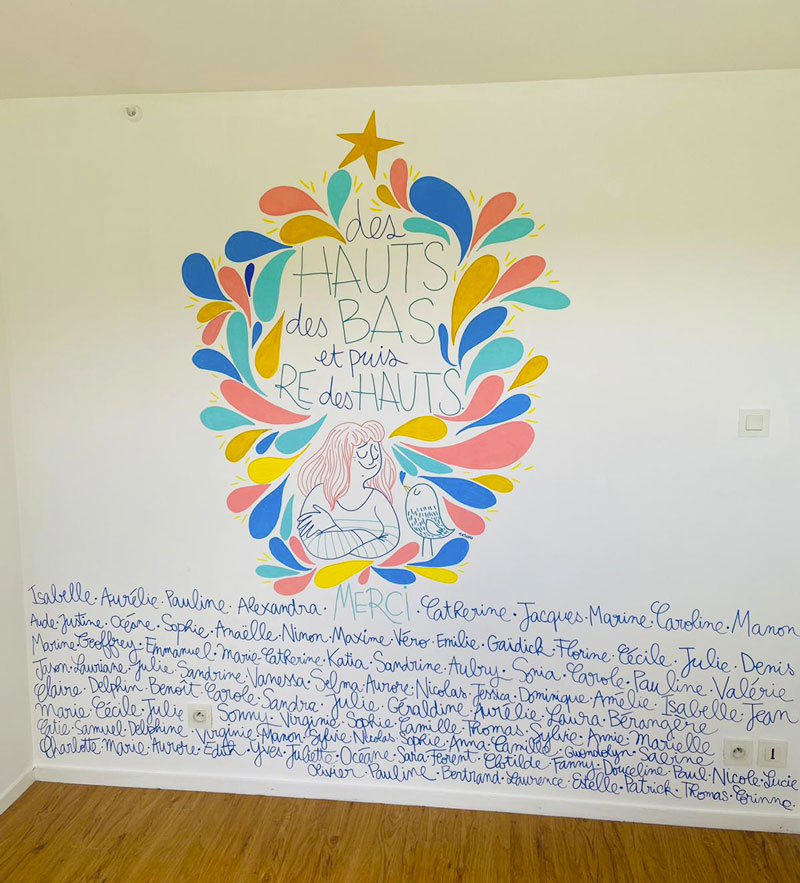 des
HAUTS
des BAS
et puis
RE des HAUTS.
MERCI
Isabelle · Aurélie · Pauline · Alexandra · Catherine · Jacques · Marine · Caroline · Manon
Aude · Justine · Océane · Sophie · Anaëlle · Ninon · Maxime · Véro · Emilie · Gaïdick · Florine · Cécile · Julie · Denis
Marine · Geoffrey · Emmanuel · Marie · Catherine · Katia · Sandrine · Aubry · Sonia · Carole · Pauline · Valérie
Jason · Lauriane · Julie · Sandrine · Vanessa · Selma · Aurore · Nicolas · Jessica · Dominique · Amélie · Isabelle · Jean
Claire · Delphin · Benoit · Carole · Sandra · Julie · Géraldine · Aurélie · Laura · Bérangère
Marie · Cécile · Julie · Sonny · Virginie · Sophie · Camille · Thomas · Sylvie · Annie · Marielle
Catie · Samuel · Delphine · Virginie · Manon · Sylvie · Nicolas · Sophie · Anna · Camille · Gwendolyn · Sabine
Charlotte · Marie · Aurore · Edith · Yves · Juliette · Océane · Sara · Florent · Clotilde · Fanny · Douceline · Paul · Nicole · Lucie
Olivier · Pauline · Bertrand · Laurence · Estelle · Patrick · Thomas · Corinne